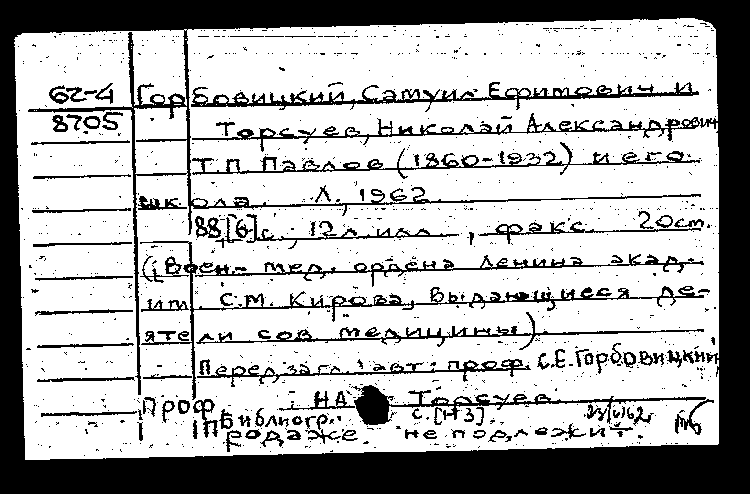 62-4 Горбовицкий, Самуил Ефимович и
8705 Торсуев, Николай Александрович
Т.П. Павлов (1860-1932) и его
школа. Л., 1962.
88,[6]с., 12 л. илл., факс. 20 см.
(Воен.-мед. ордена Ленина акад.
им. С.М. Кирова, Выдающиеся де-
ятели сов. медицины).
Перед загл. авт.: проф. С.Е. Горбовицкий,
проф. Н.А. Торсуев.
Библиогр.: с.
Продаже не подлежит.